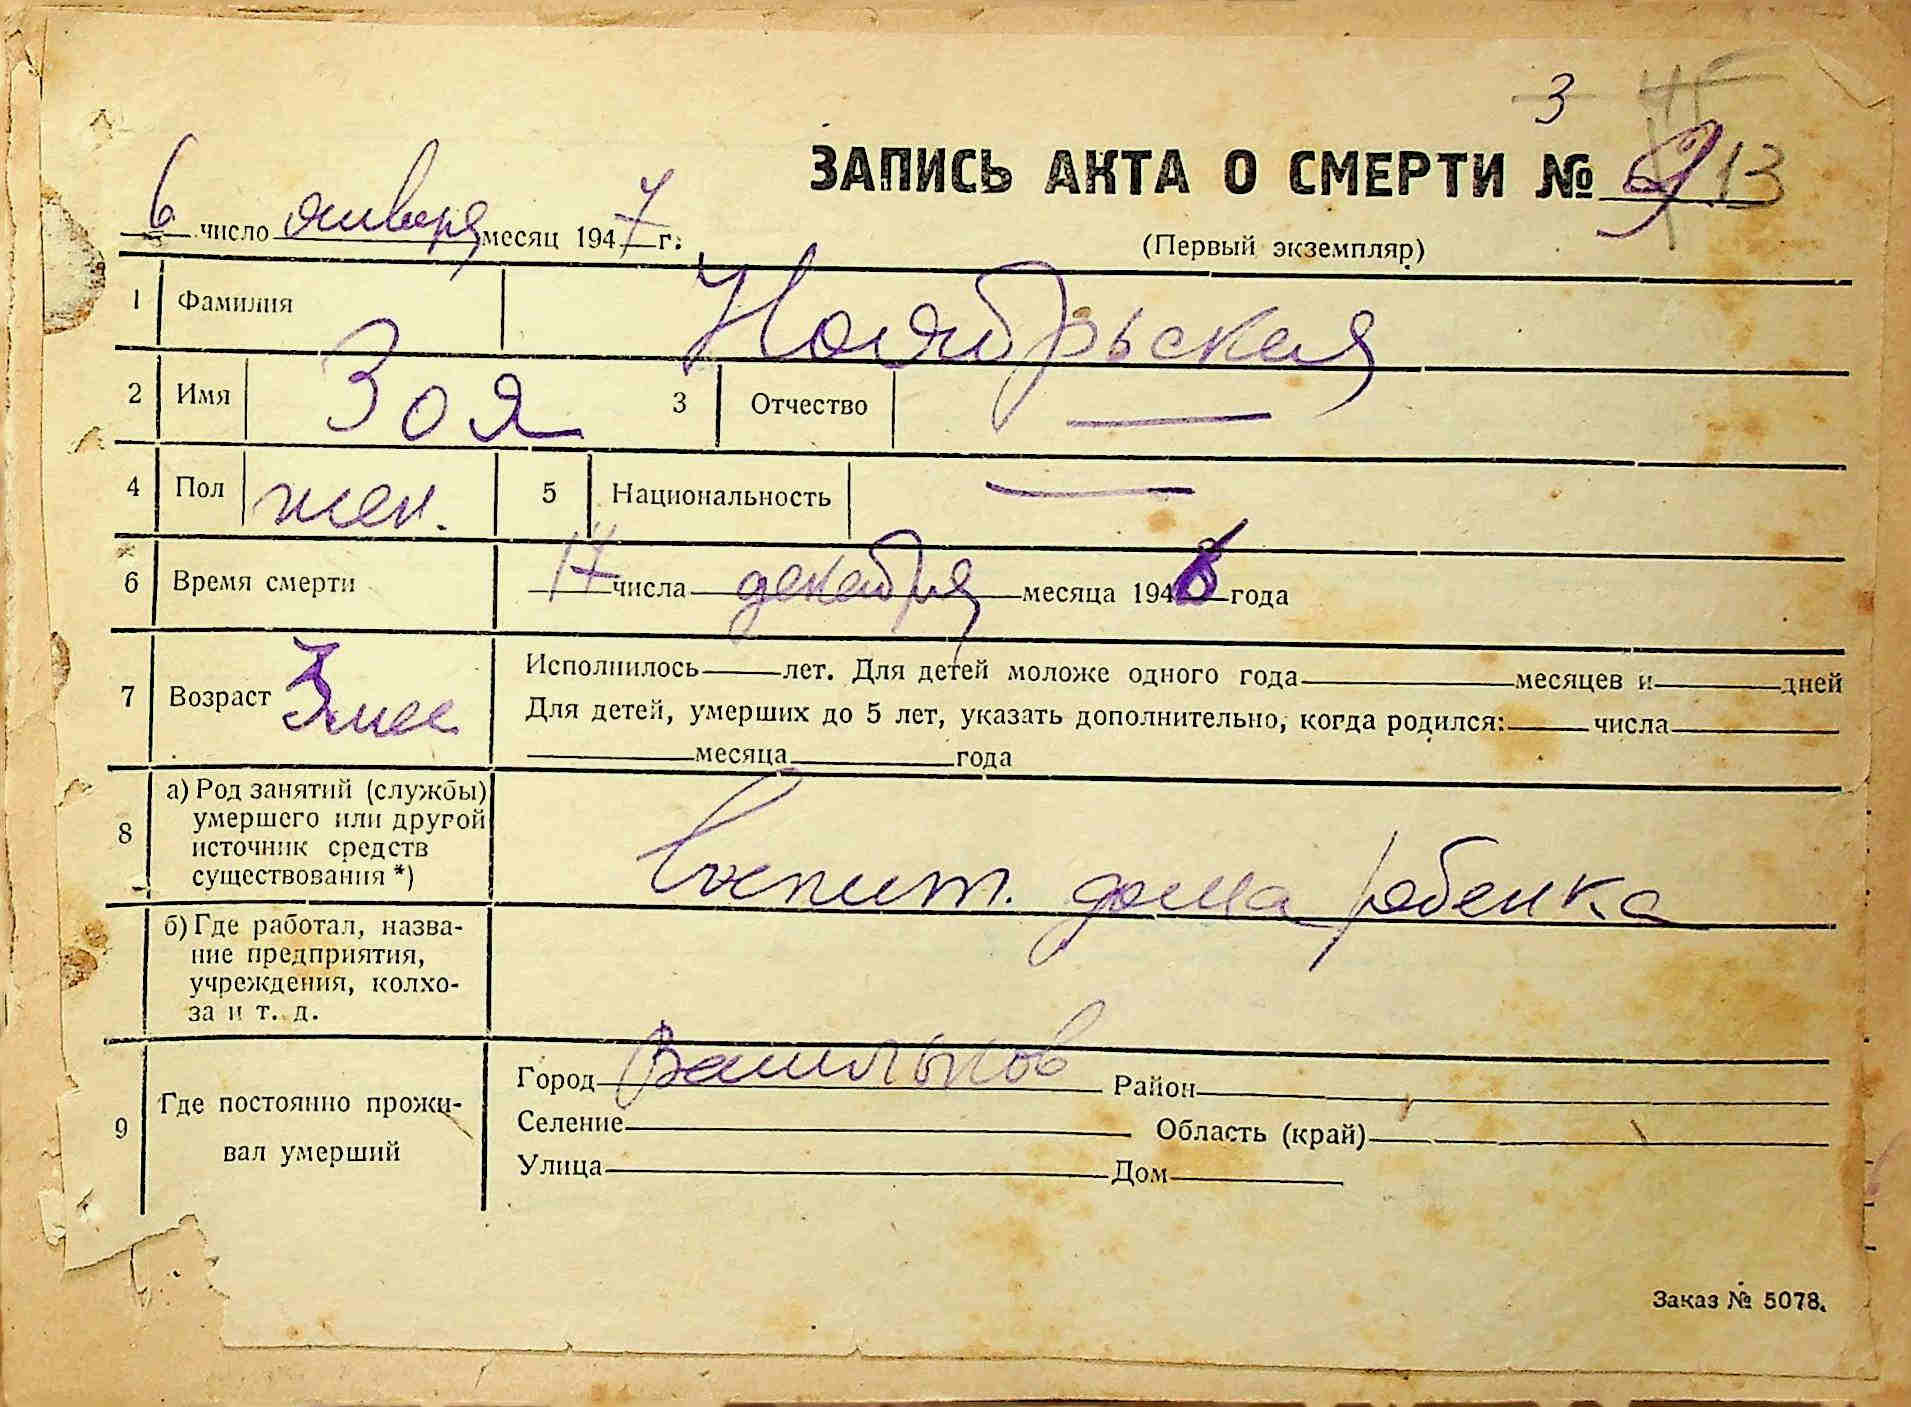 3
ЗАПИСЬ АКТА О СМЕРТИ № 9 13
6 число января месяц 1947 г.
(Первый экземпляр)
1 Фамилия Ноябрьская
2 Имя Зоя 3 Отчество —
4 Пол жен. 5 Национальность —
6 Время смерти 17 числа декабря месяца 1946 года
7 Возраст 3 мес
Исполнилось лет. Для детей моложе одного года месяцев и дней
Для детей, умерших до 5 лет, указать дополнительно, когда родился: числа
месяца года
8 а) Род занятий (службы)
умершего или другой
источник средств
существования *)
Воспит. дома ребенка
б) Где работал, назва-
ние предприятия,
учреждения, колхо-
за и т. д.
9 Где постоянно прожи-
вал умерший
Город Васильков Район
Селение Область (край)
Улица Дом
Заказ № 5078.